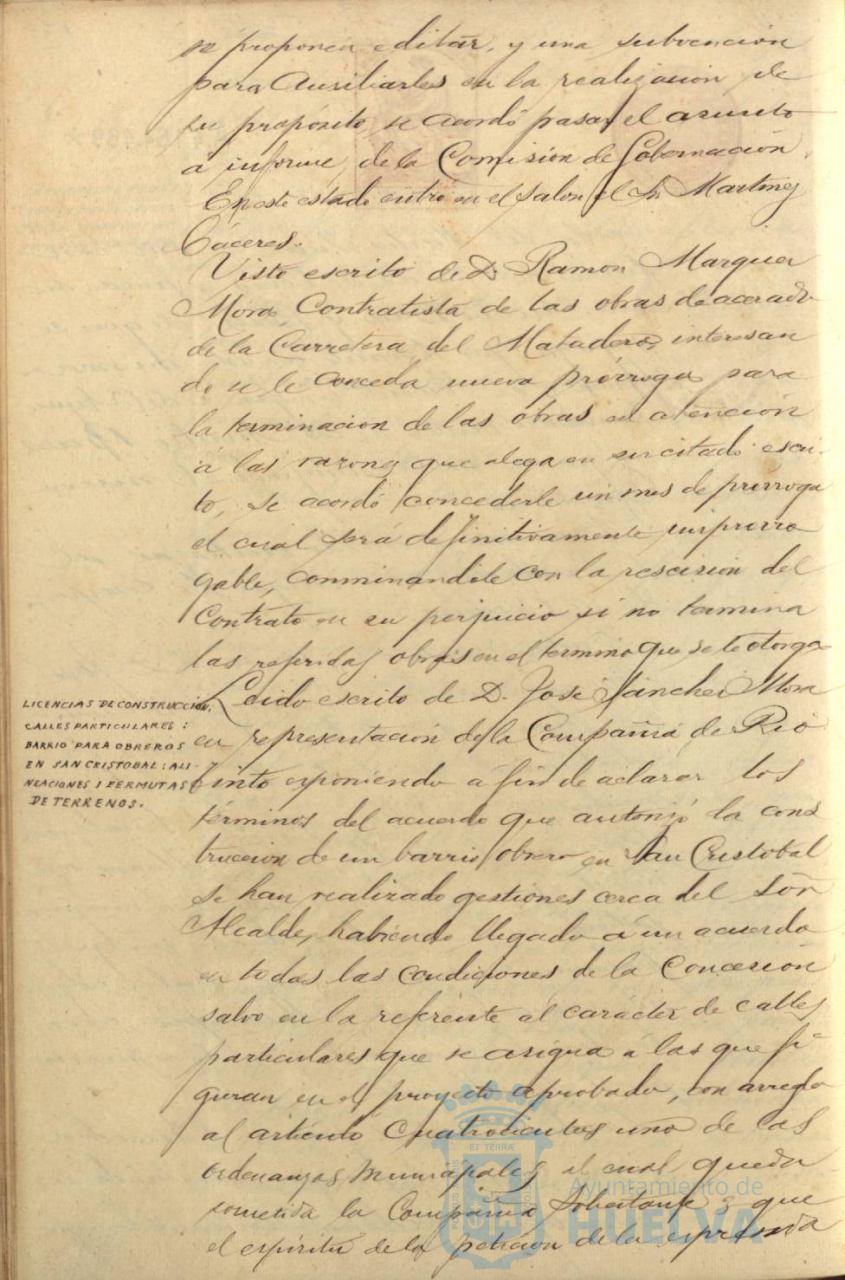 se proponen editar, y una subvención
para Auxiliarles en la realización de
su propósito, se acordó pasar el asunto
á informe de la Comisión de Gobernación.
En este estado entro en el salon el Sr Martinez
Cáceres.
Visto escrito de Dn Ramon Marquez
Mora Contratista de las obras de acerado
de la Carretera del Matadero, interesan
do se le conceda nueva prórroga para
la terminacion de las obras en atención
á las razones que alega en su citado escri-
to, se acordó concederle un mes de prorroga
el cual será definitivamente improrro
gable, conminandole con la rescisión del
Contrato en su perjuicio si no termina
las referidas obras en el termino que se le otorga
LICENCIAS DE CONSTRUCCION,
CALLES PARTICULARES:
BARRIO PARA OBREROS
EN SAN CRISTOBAL: ALI-
NEACIONES Y PERMUTAS
DE TERRENOS.
Leido escrito de D. José Sánchez Mora
en representación de la Compañia de Rio
tinto exponiendo á fin de aclarar los
términos del acuerdo que autorizó la cons
trucción de un barrio obrero en San Cristobal
se han realizado gestiones cerca del Señr
Alcalde, habiendo llegado á un acuerdo
en todas las condiciones de la Concesión
salvo en la referente al carácter de calles
particulares que se asigna á las que fi-
guran en el proyecto aprobado, con arreglo
al artículo Cuatrocientos uno de las
Ordenanzas Municipales, al cual queda
sometida la Compañia Solicitante; que
el espíritu de la petición de la expresada
Ayuntamiento de
HUELVA